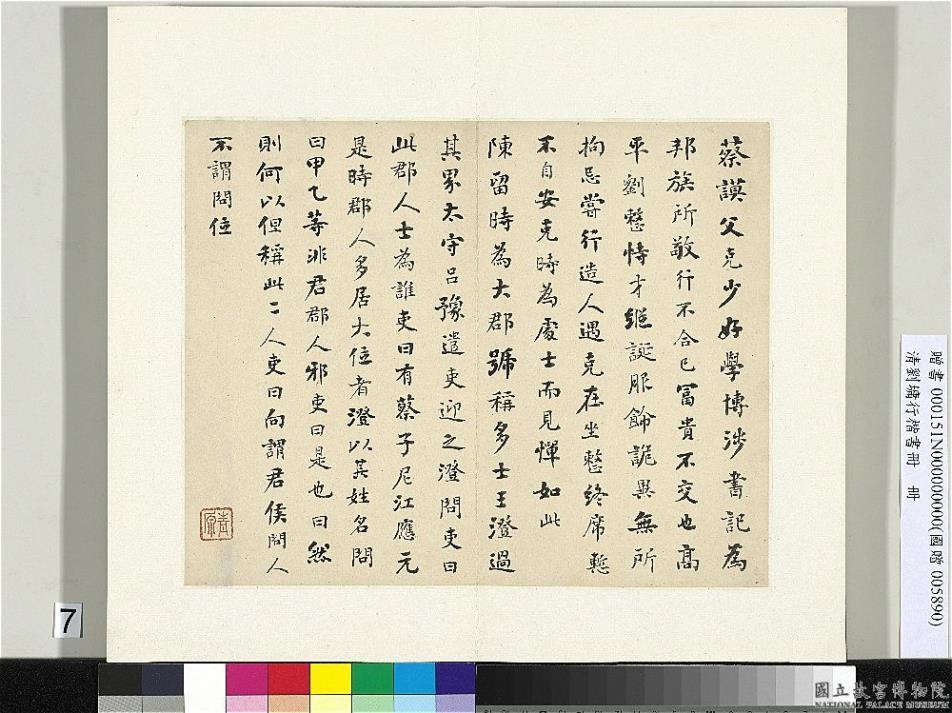 蔡謨父克少好學博涉書記為
邦族所敬行不合己冨貴不交也高
平劉整恃才縱誕服飾詭異無所
拘忌甞行造人遇克在坐整終席慙
不自安克時為處士而見憚如此
陳留時為大郡號稱多士王澄過
其界太守呂豫遣吏迎之澄問吏曰
此郡人士為誰吏曰有蔡子尼江應元
是時郡人多居大位者澄以其姓名問
曰甲乙等非君郡人邪吏曰是也曰然
則何以但稱此二人吏曰向謂君侯問人
不謂問位
7
贈書 000151N000000000(國贈 005890)
清劉墉行楷書冊 冊
國立故宮博物院
NATIONAL PALACE MUSEUM